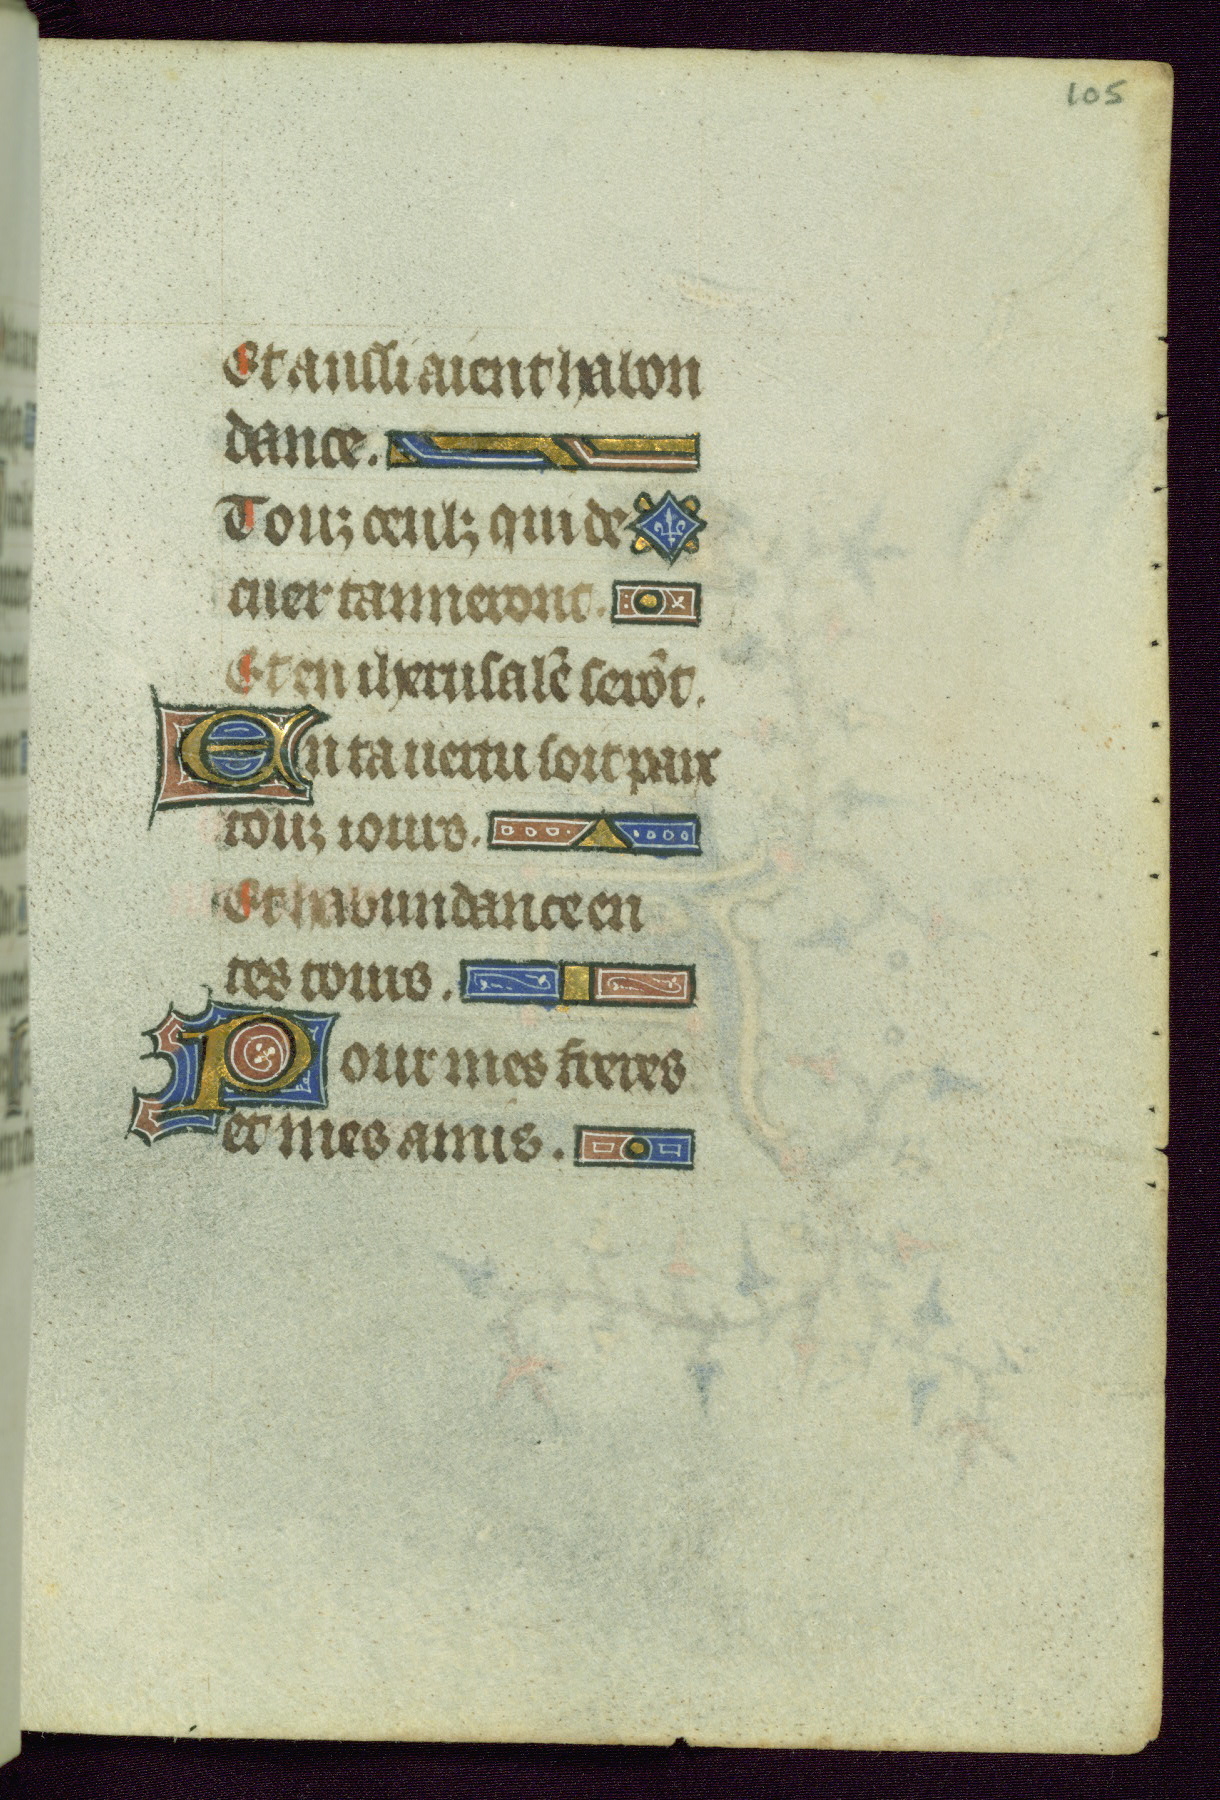 105
Et aussi aient habon
dance.
Touz ceulz qui de
cuer tanneront.
Et en iherusalē serōt.
En ta uertu soit paix
touz iours.
Et habundance en
tes tours.
Pour mes freres
et mes amis.